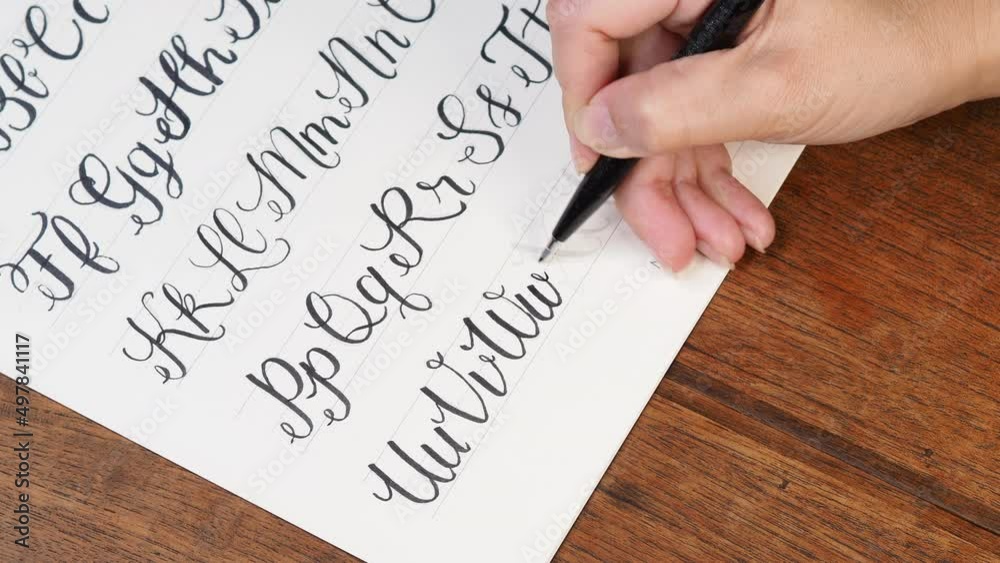 Bb C
Ff Gg Hh
Kk Ll Mm Nn
Pp Qq Rr Ss Tt
Uu Vv Ww
Adobe Stock | #497841117
Adobe Stock